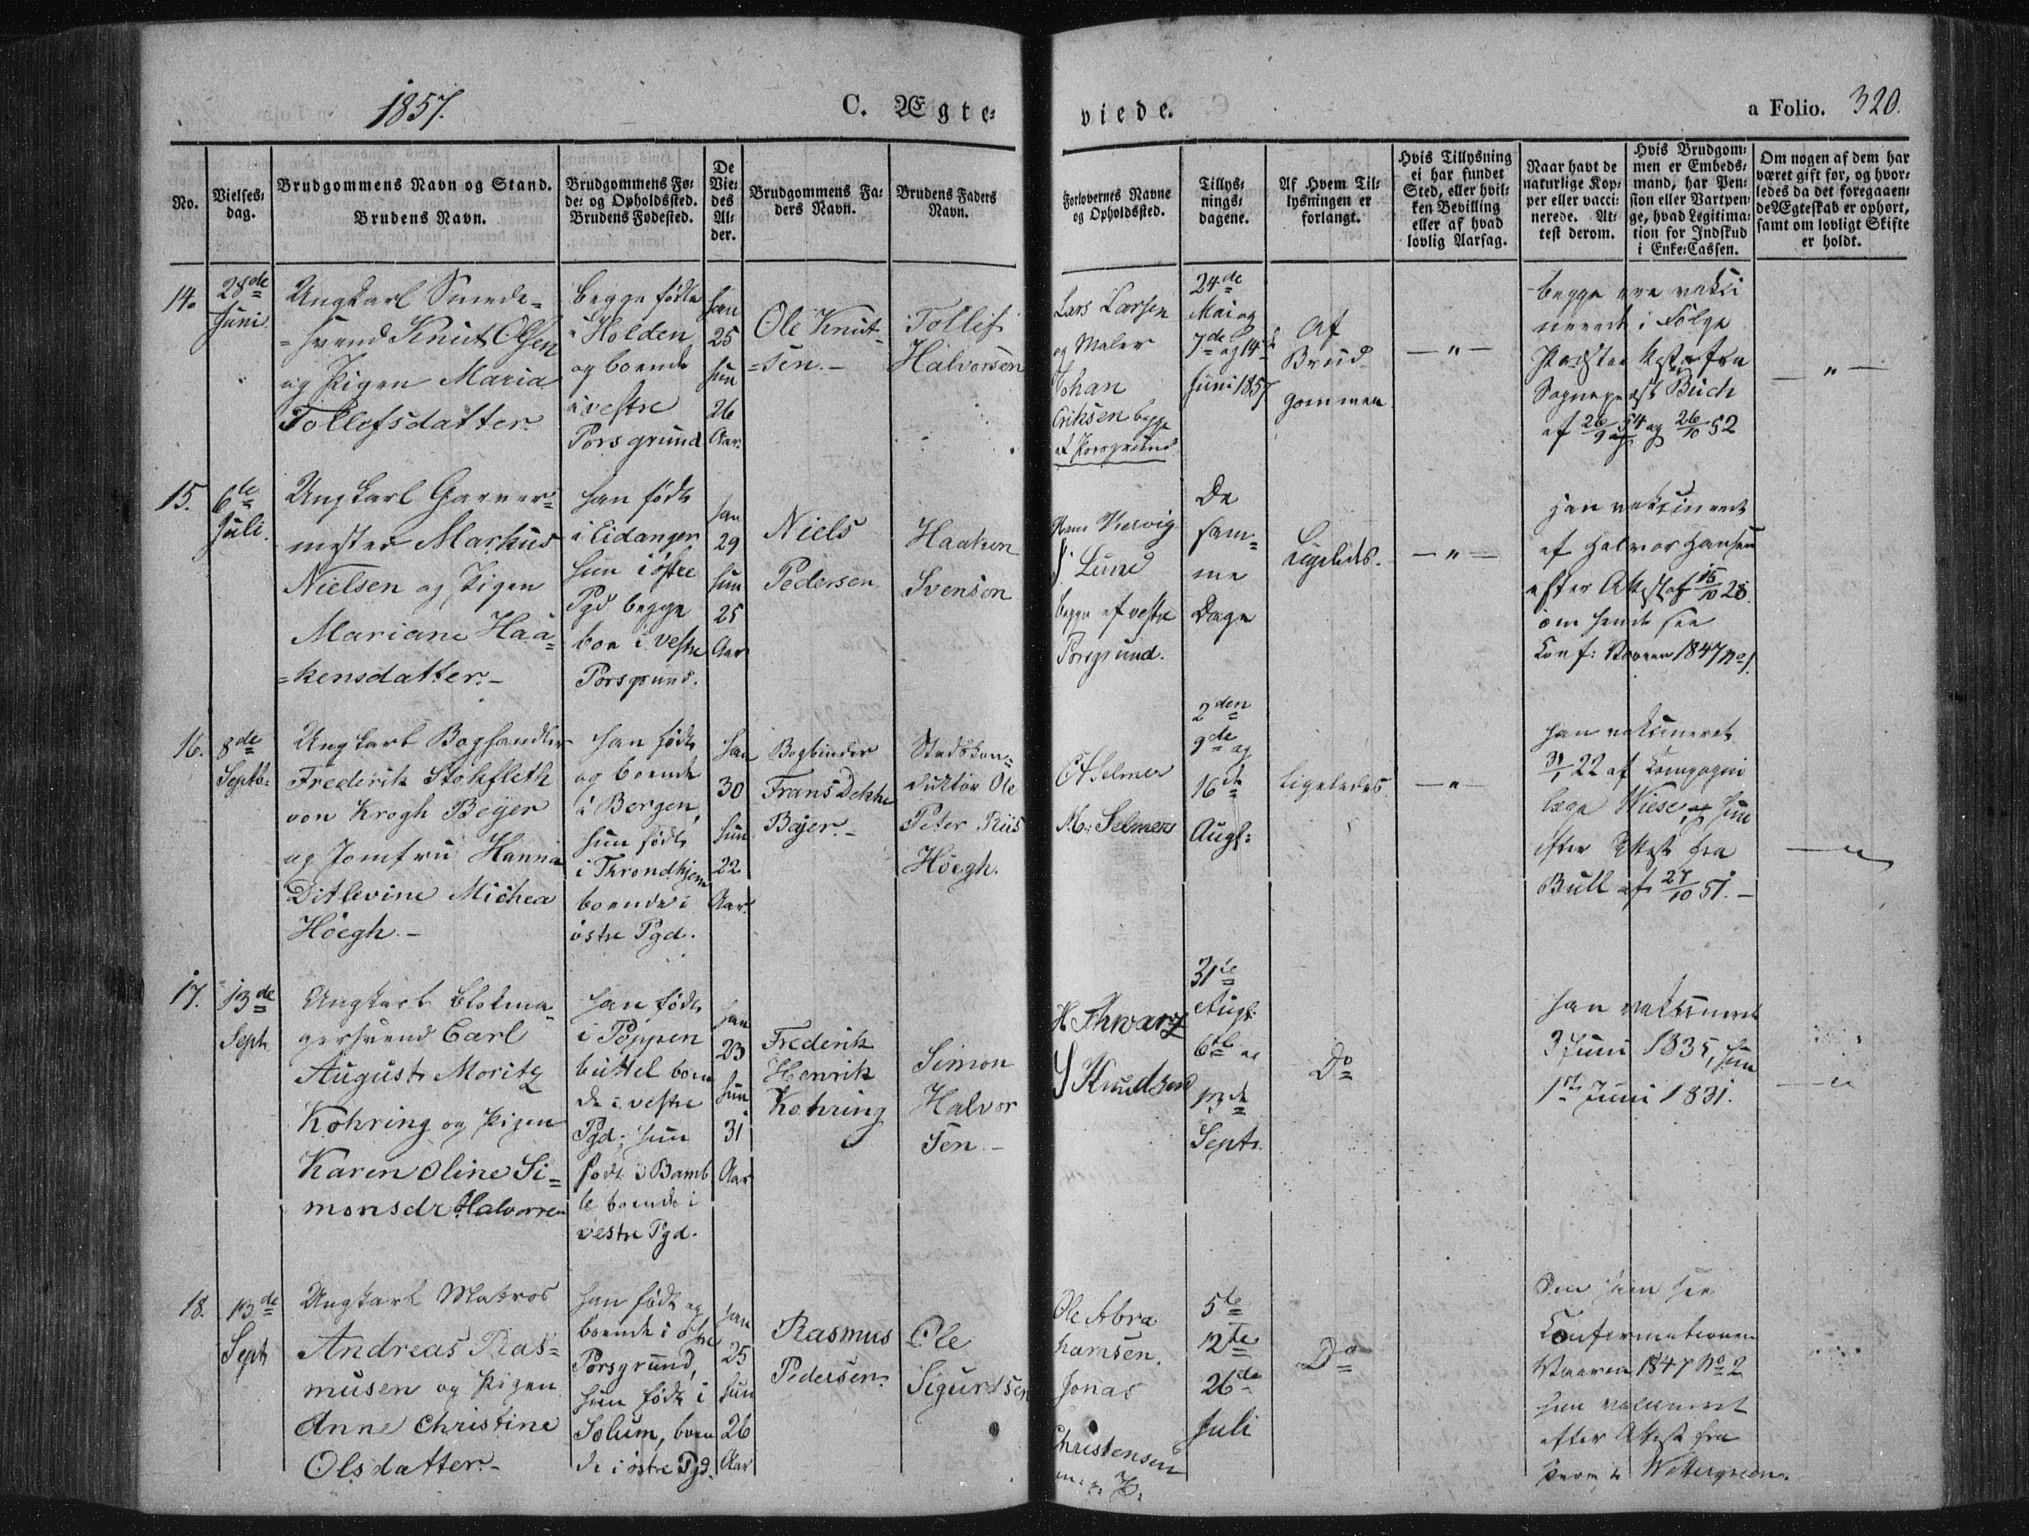 1857.
C. Ægte-
viede.
a Folio. 320.
No.
Vielses-
dag.
Brudgommens Navn og Stand.
Brudens Navn.
Brudgommens Fø-
de- og Opholdssted.
Brudens Fødested.
De
Vie-
des
Al-
der.
Brudgommens Fa-
ders Navn.
Brudens Faders
Navn.
Forlovernes Navne
og Opholdssted.
Tillys-
nings-
dagene.
Af Hvem Til-
lysningen er
forlangt.
Hvis Tillysning
ei har fundet
Sted, eller hvil-
ken Bevilling
eller af hvad
lovlig Aarsag.
Naar havt de
naturlige Kop-
per eller vacci-
nerede. At-
test derom.
Hvis Brudgom-
men er Embeds-
mand, har Pen-
sion eller Vartpen-
ge, hvad Legitima-
tion for Indskud
i Enke-Cassen.
Om nogen af dem har
været gift før, og hvor-
ledes da det foregaaen-
de Ægteskab er ophørt,
samt om lovligt Skifte
er holdt.
14.
28de
Juni
Ungkarl Smede-
svend Knut Olsen
og Pigen Maria
Tollefsdatter.
begge fødte
i Holden
og boende
i vestre
Porsgrund
han
25
hun
26
Aar.
Ole Knut-
sen.-
Tollef
Halvorsen
Lars Larsen
og Maler
Johan
Eriksen begge
af Porsgrund
24de
Mai og
7de og 14de
Juni 1857
Af
Brud
gommen
- " -
begge ere vakci
nerede i Følge
Attester fra
Sognepræst Buch
af 26/9 54 og 26/10 52
- " -
15.
6te
Juli.
Ungkarl Garver-
mester Markus
Nielsen og Pigen
Mariane Haa-
kensdatter.-
han født
i Eidanger
hun i østre
Pgd begge
boe i vestre
Porsgrund.
han
29
hun
25
Aar
Niels
Pedersen
Haaken
Svensen
Lund
begge af vestre
Porsgrund.
De
sam-
me
Dage
Ligeledes.
- " -
han vakcineret
af Halvor Hansen
efter Attest af 15/10 28.
om hende see
Conf: Vaaren 1847 No 1.
16.
8de
Septbr.
Ungkarl Boghandler
Frederik Stokfleth
von Krogh Beyer
og Jomfru Hanna
Ditlevine Michea
Höegh.-
han født
og boende
i Bergen,
hun født
i Throndhjem
boende i
østre Pgd.
han
30
hun
22
Aar.
Bogbinder
Frans Dekke
Bejer.-
Stadskon-
duktør Ole
Peter Riis
Höegh.
Selmer
M. Selmer
2den
9de og
16de
Augst:
Ligeledes
- " -
han vakcineret
31/1 22 af Compagni
læge Wiese, og hun
efter Attest fra
Bull af 27/10 51.-
- " -
17.
13de
Sept
Ungkarl Blokma-
gersvend Carl
August Moritz
Kohring og Pigen
Karen Oline Si-
monsdr Halvorsen
han født
i Poppen
büttel boen
de i vestre
Pgd; hun
født i Bamb
le boende i
vestre Pgd.
han
23
hun
31
Aar
Frederik
Henrik
Kohring
Simon
Halvor
sen.-
H Schwarz
Knudsen
31te
Augst:
6te og
13de
Septr.
Do
han vakcineret
3 Juni 1835, hun
1ste Juni 1831.
- " -
18.
13de
Sept
Ungkarl Matros
Andreas Ras-
musen og Pigen
Anne Christine
Olsdatter.-
han født og
boende i østre
Porsgrund,
hun født i
Solum, boen
de i østre Pgd.
han
25
hun
26
Aar
Rasmus
Pedersen.
Ole
Sigurdsen
Ole Abra
hamsen.
Jonas
Christensen
5te
12te
26de
Juli
Do
Om ham see
Confirmationen
Vaaren 1847 No 2
hun vakcineret
efter Attest fra
Wettergreen.